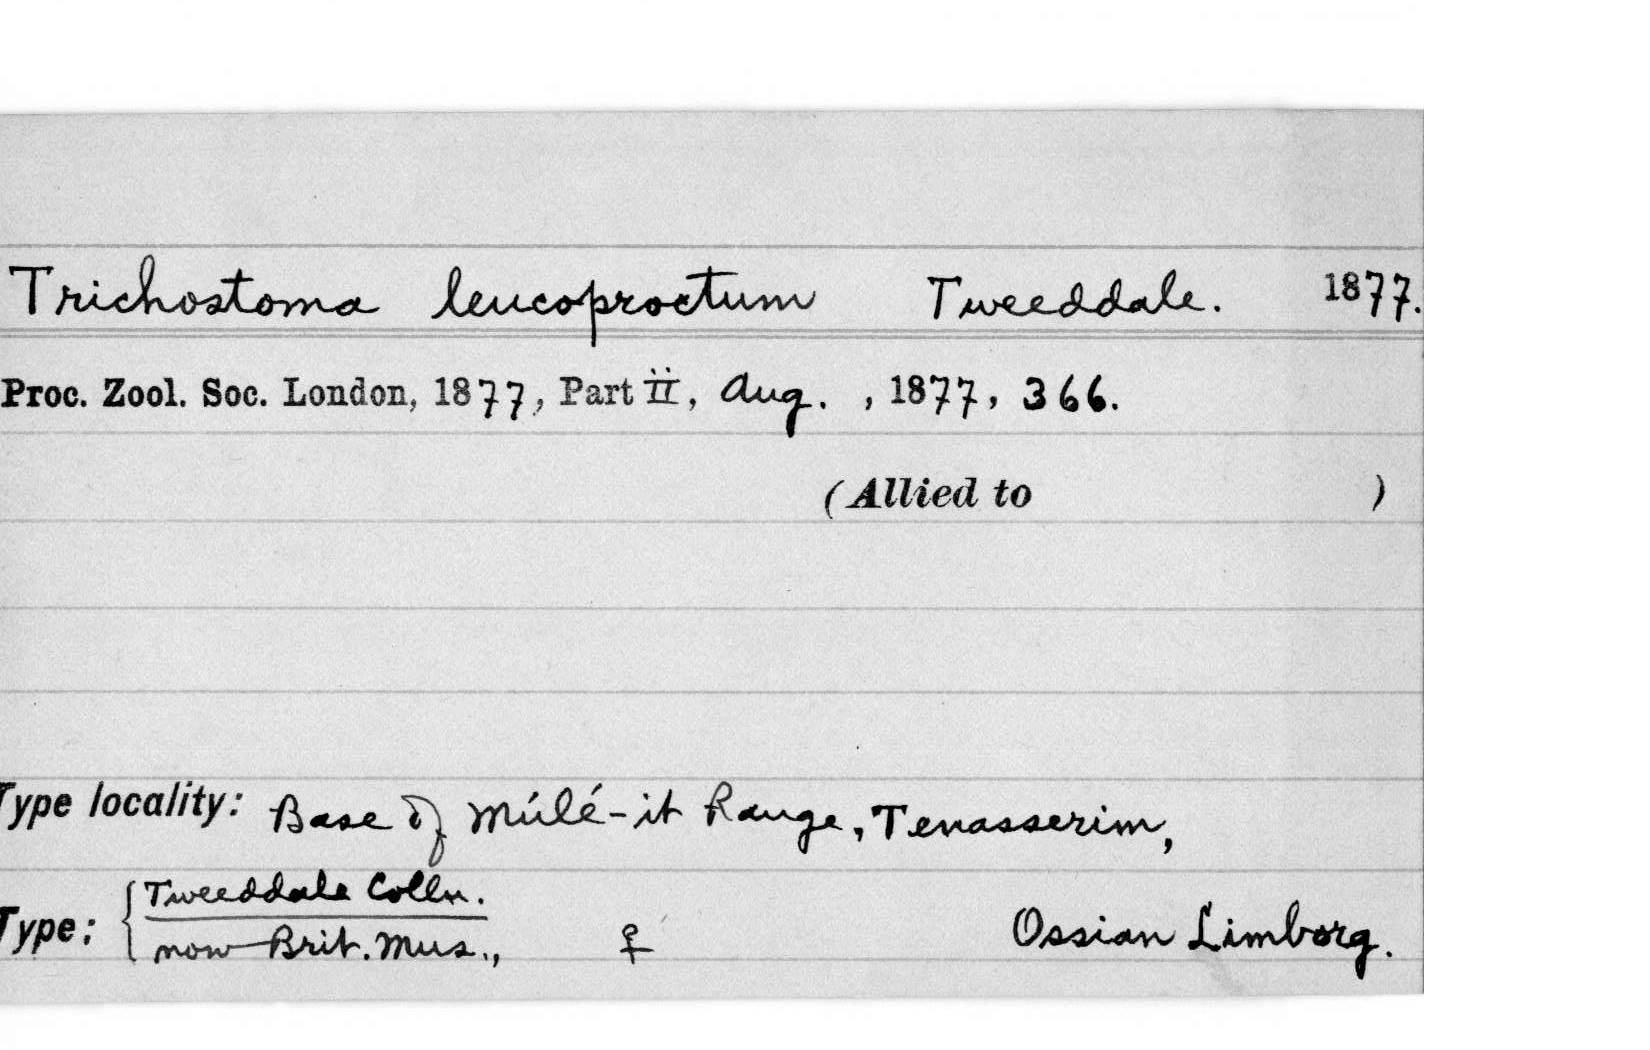 Trichostoma leucoproctum Tweeddale. 1877.
Proc. Zool. Soc. London, 1877, Part ii, Aug. , 1877, 366.
(Allied to )
Type locality: Base of Múlé-it Range, Tenasserim,
Type: { Tweeddale Colln.
now Brit. Mus., ♀ Ossian Limborg.